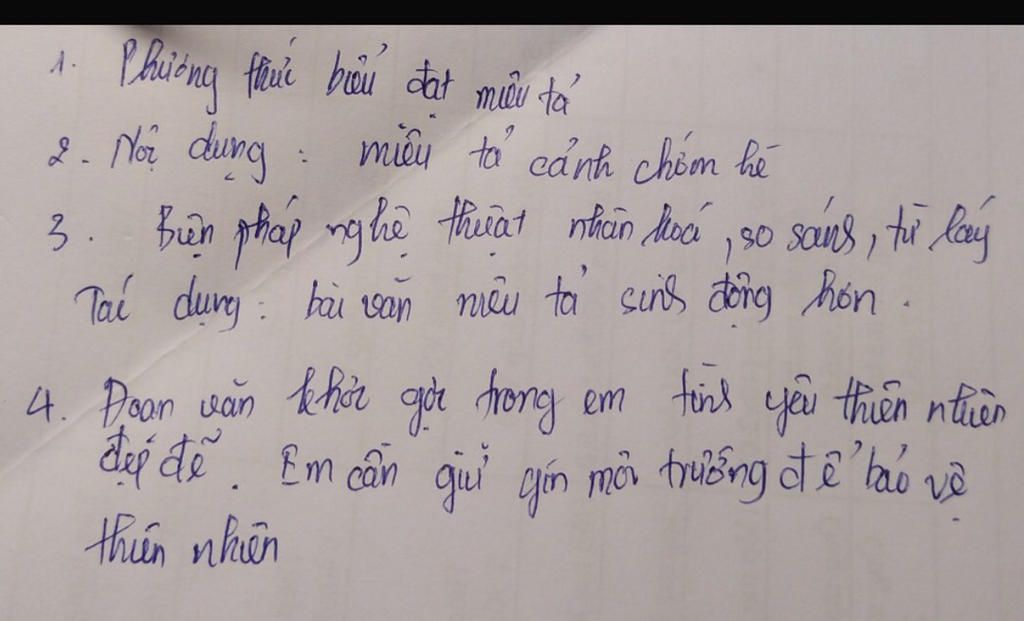 1. Phương thức biểu đạt miêu tả
2. Nội dung : miêu tả cảnh chớm hè
3. Biện pháp nghệ thuật nhân hoá, so sánh, từ láy
Tác dụng : bài văn miêu tả sinh động hơn.
4. Đoạn văn khơi gợi trong em tình yêu thiên nhiên
đẹp đẽ. Em cần giữ gìn môi trường để bảo vệ
thiên nhiên